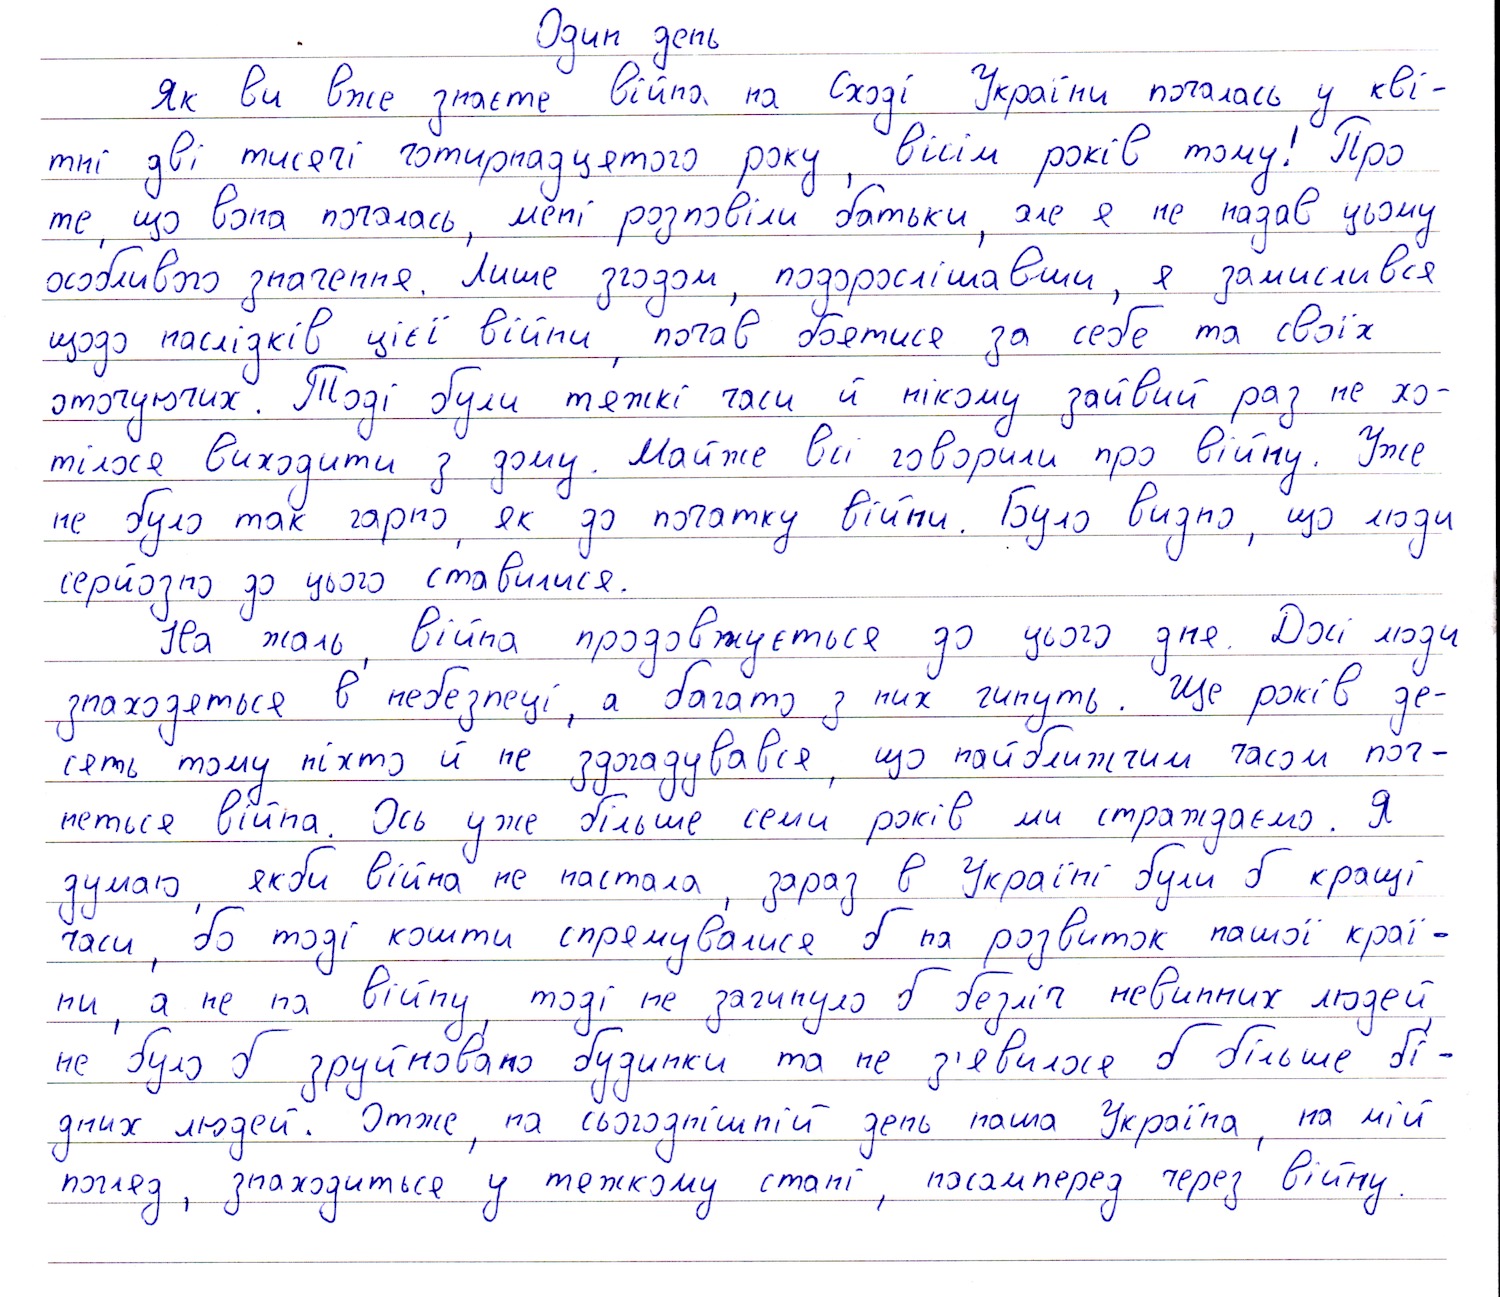 Один день
Як ви вже знаєте війна на Сході України почалась у кві-
тні дві тисячі чотирнадцятого року, вісім років тому! Про
те, що вона почалась, мені розповіли батьки, але я не надав цьому
особливого значення. Лише згодом, подорослішавши, я замислився
щодо наслідків цієї війни, почав боятися за себе та своїх
оточуючих. Тоді були тяжкі часи й нікому зайвий раз не хо-
тілося виходити з дому. Майже всі говорили про війну. Уже
не було так гарно, як до початку війни. Було видно, що люди
серйозно до цього ставилися.
На жаль, війна продовжується до цього дня. Досі люди
знаходяться в небезпеці, а багато з них гинуть. Ще років де-
сять тому ніхто й не здогадувався, що найближчим часом поч-
неться війна. Ось уже більше семи років ми страждаємо. Я
думаю, якби війна не настала, зараз в Україні були б кращі
часи, бо тоді кошти спрямувалися б на розвиток нашої краї-
ни, а не на війну, тоді не загинуло б безліч невинних людей,
не було б зруйновано будинки та не з'явилося б більше бі-
дних людей. Отже, на сьогоднішній день наша Україна, на мій
погляд, знаходиться у тяжкому стані, насамперед через війну.